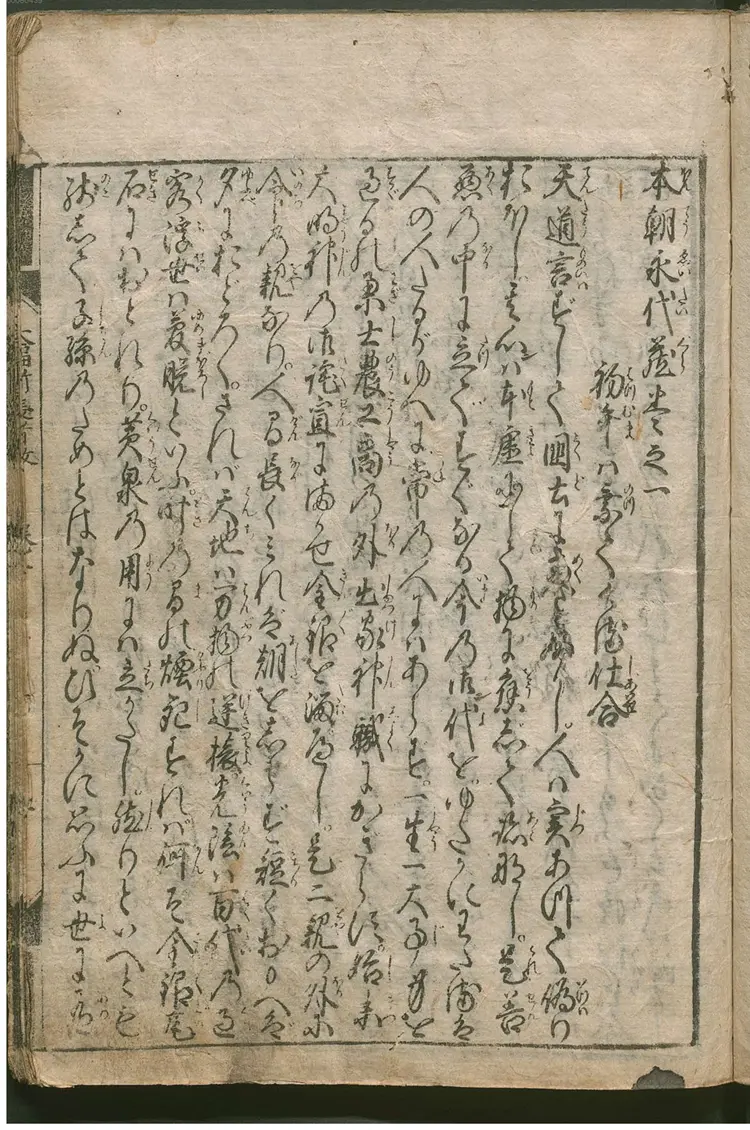 本朝永代蔵巻之一
初午は乗てくる仕合
天道言ずして国土に恵みふかし。人は実あつて偽り
おほし其心は本虚にして物に応じて跡なし。是善
悪の中に立てすぐなる今の御代をゆたかにわたるは
人の人たるがゆへに常の人にはあらず。一生一大事身を
過るの業士農工商の外出家神職にかぎらず。始末
大明神の御詫宣にまかせ金銀を溜べし。是二親の外に
命の親なり。人間長くみれば朝をしらず短くおもへば
夕におどろく。されば天地は万物の逆旅光陰は百代の過
客浮世は夢幻といふ。時の間の煙死すれば何ぞ金銀瓦
石にはおとれり。黄泉の用には立がたし。然りといへども
残して子孫のためとはなりぬひそかに思ふに世に有
大福新長者教 巻一